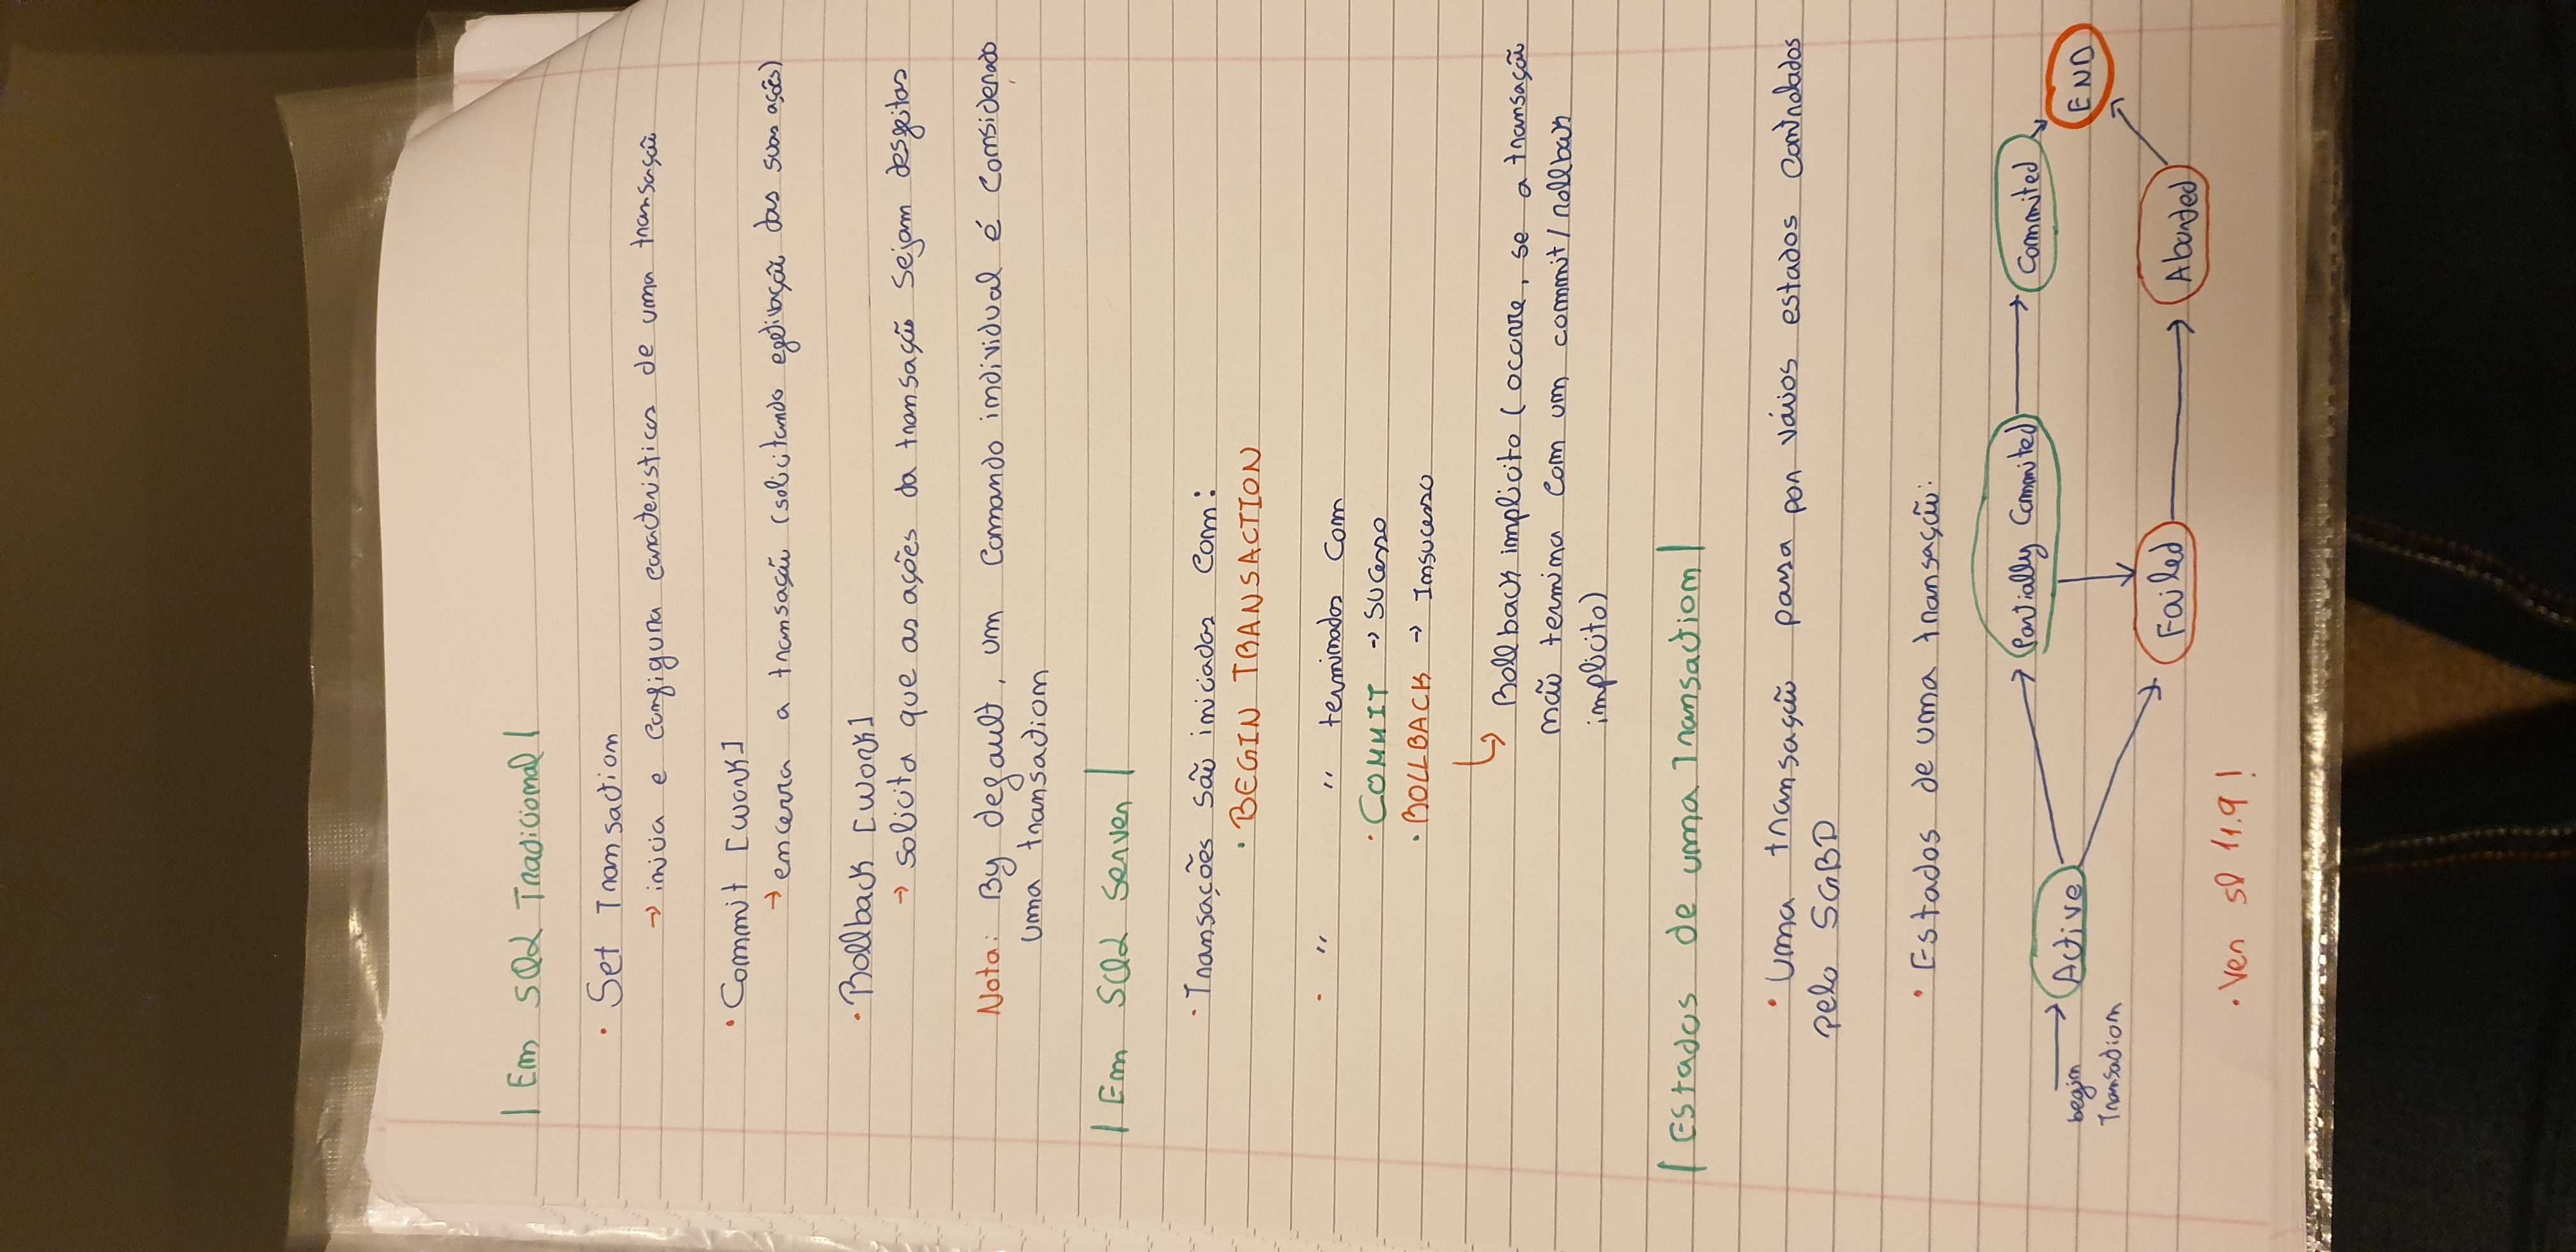 | Em SQL Tradicional |
· Set Transaction
→ inicia e configura caracteristicas de uma transação
· Commit [work]
→ encerra a transação (solicitando efetivação das suas ações)
· Rollback [work]
→ solicita que as ações da transação sejam desfeitas
Nota: By default, um comando individual é considerado
uma transaction
| Em SQL Server |
· Transações são iniciadas com:
· BEGIN TRANSACTION
· " " terminadas com
· COMMIT → sucesso
· ROLLBACK → Insucesso
↳ Rollback implicito (ocorre, se a transação
não termina com um commit/rollback
implicito)
| Estados de uma Transaction |
· Uma transação passa por vários estados controlados
pelo SGBD
· Estados de uma transação:
Partially Commited → Commited
begin → Active END
Transaction
Failed → Aborted
· Ver sl 11.9!